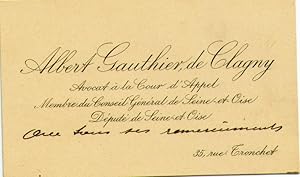 Albert Gauthier de Clagny
Avocat à la Cour d'Appel
Membre du Conseil Général de Seine-et-Oise
Député de Seine-et-Oise
ses remerciements
35, rue Tronchet